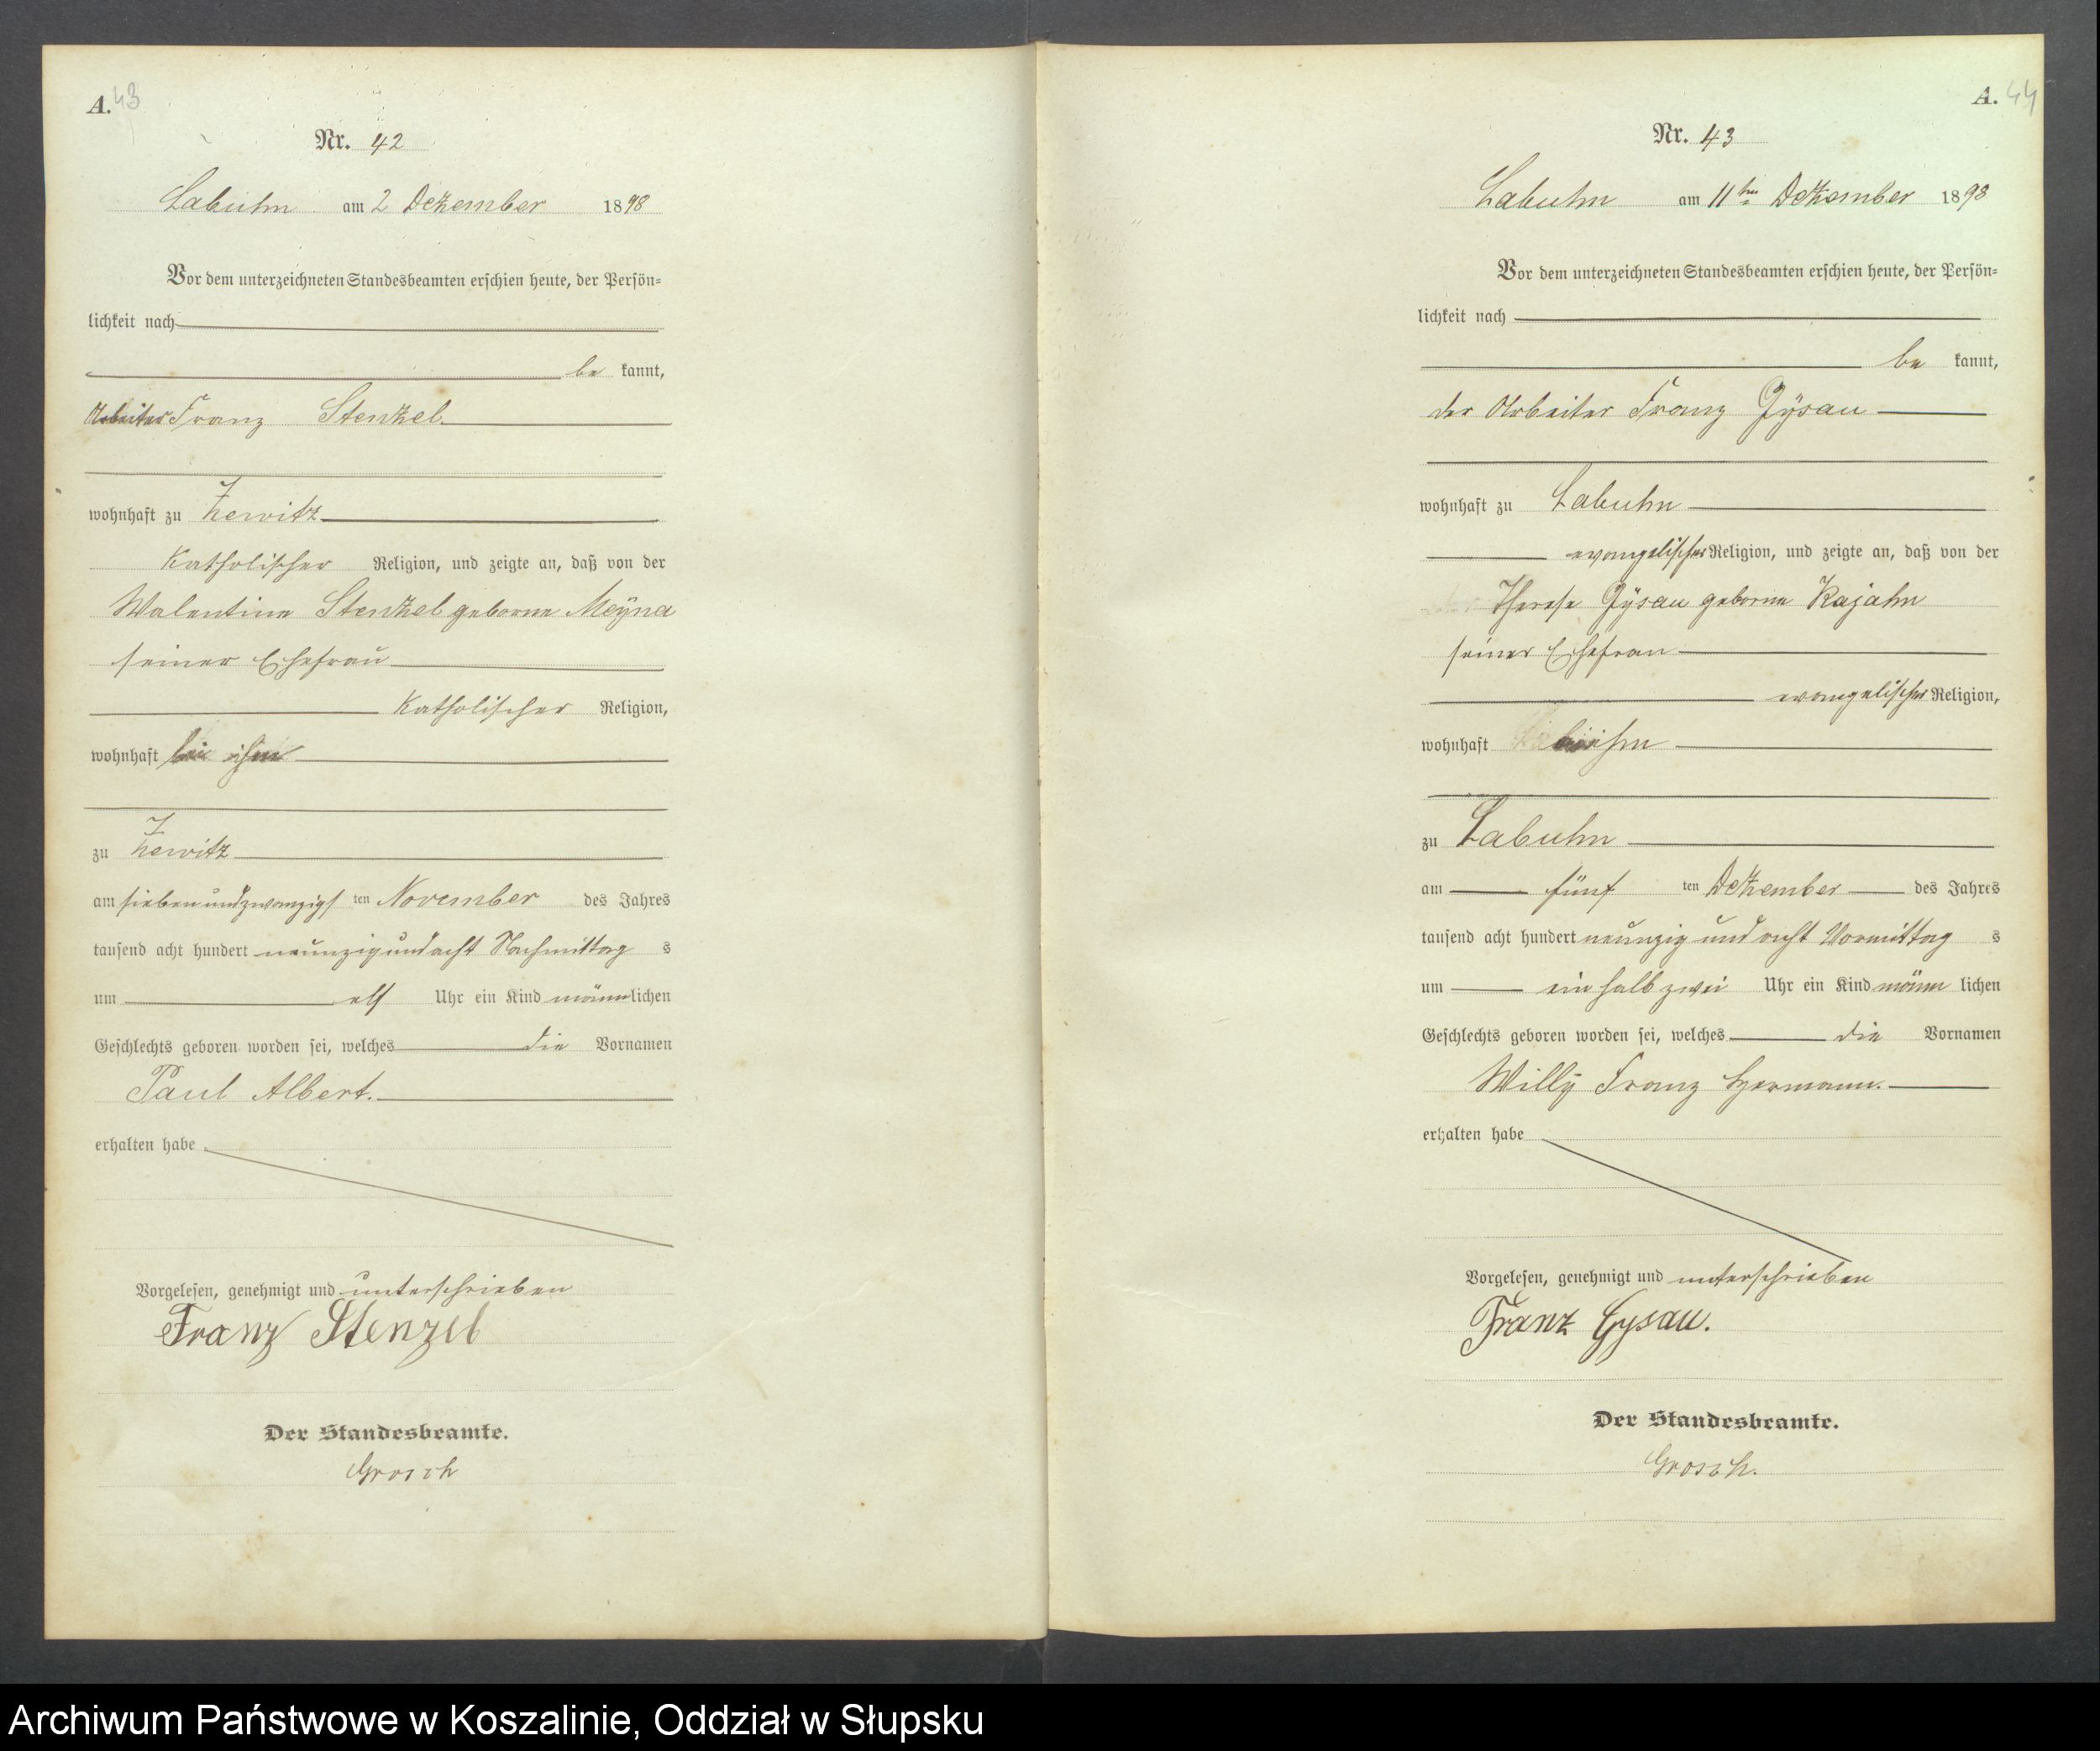 A. 43
Nr. 42
Labuhn am 2 Dezember 1898
Vor dem unterzeichneten Standesbeamten erschien heute, der Persön-
lichkeit nach
be kannt,
Arbeiter Franz Stenzel
wohnhaft zu Zewitz
katholischer Religion, und zeigte an, daß von der
Walentine Stenzel geborne Meÿna
seiner Ehefrau
katholischer Religion,
wohnhaft bei ihm
zu Zewitz
am siebenundzwanzigsten November des Jahres
tausend acht hundert neunzig und acht Nachmittags
um elf Uhr ein Kind männlichen
Geschlechts geboren worden sei, welches die Vornamen
Paul Albert.
erhalten habe
Vorgelesen, genehmigt und unterschrieben
Franz Stenzel
Der Standesbeamte.
Grosch
A. 44
Nr. 43
Labuhn am 11ten Dezember 1898
Vor dem unterzeichneten Standesbeamten erschien heute, der Persön-
lichkeit nach
be kannt,
der Arbeiter Franz Gÿsau
wohnhaft zu Labuhn
evangelischer Religion, und zeigte an, daß von der
Therese Gÿsau geborne Kajahn
seiner Ehefrau
evangelischer Religion,
wohnhaft bei ihm
zu Labuhn
am fünf ten Dezember des Jahres
tausend acht hundert neunzig und acht Vormittags
um ein halb zwei Uhr ein Kind männ lichen
Geschlechts geboren worden sei, welches die Vornamen
Willÿ Franz Hermann.
erhalten habe
Vorgelesen, genehmigt und unterschrieben
Franz Gysau.
Der Standesbeamte.
Grosch.
Archiwum Państwowe w Koszalinie, Oddział w Słupsku